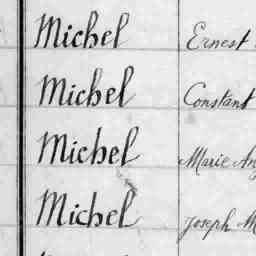 Michel Ernest
Michel Constant
Michel Marie
Michel Joseph M